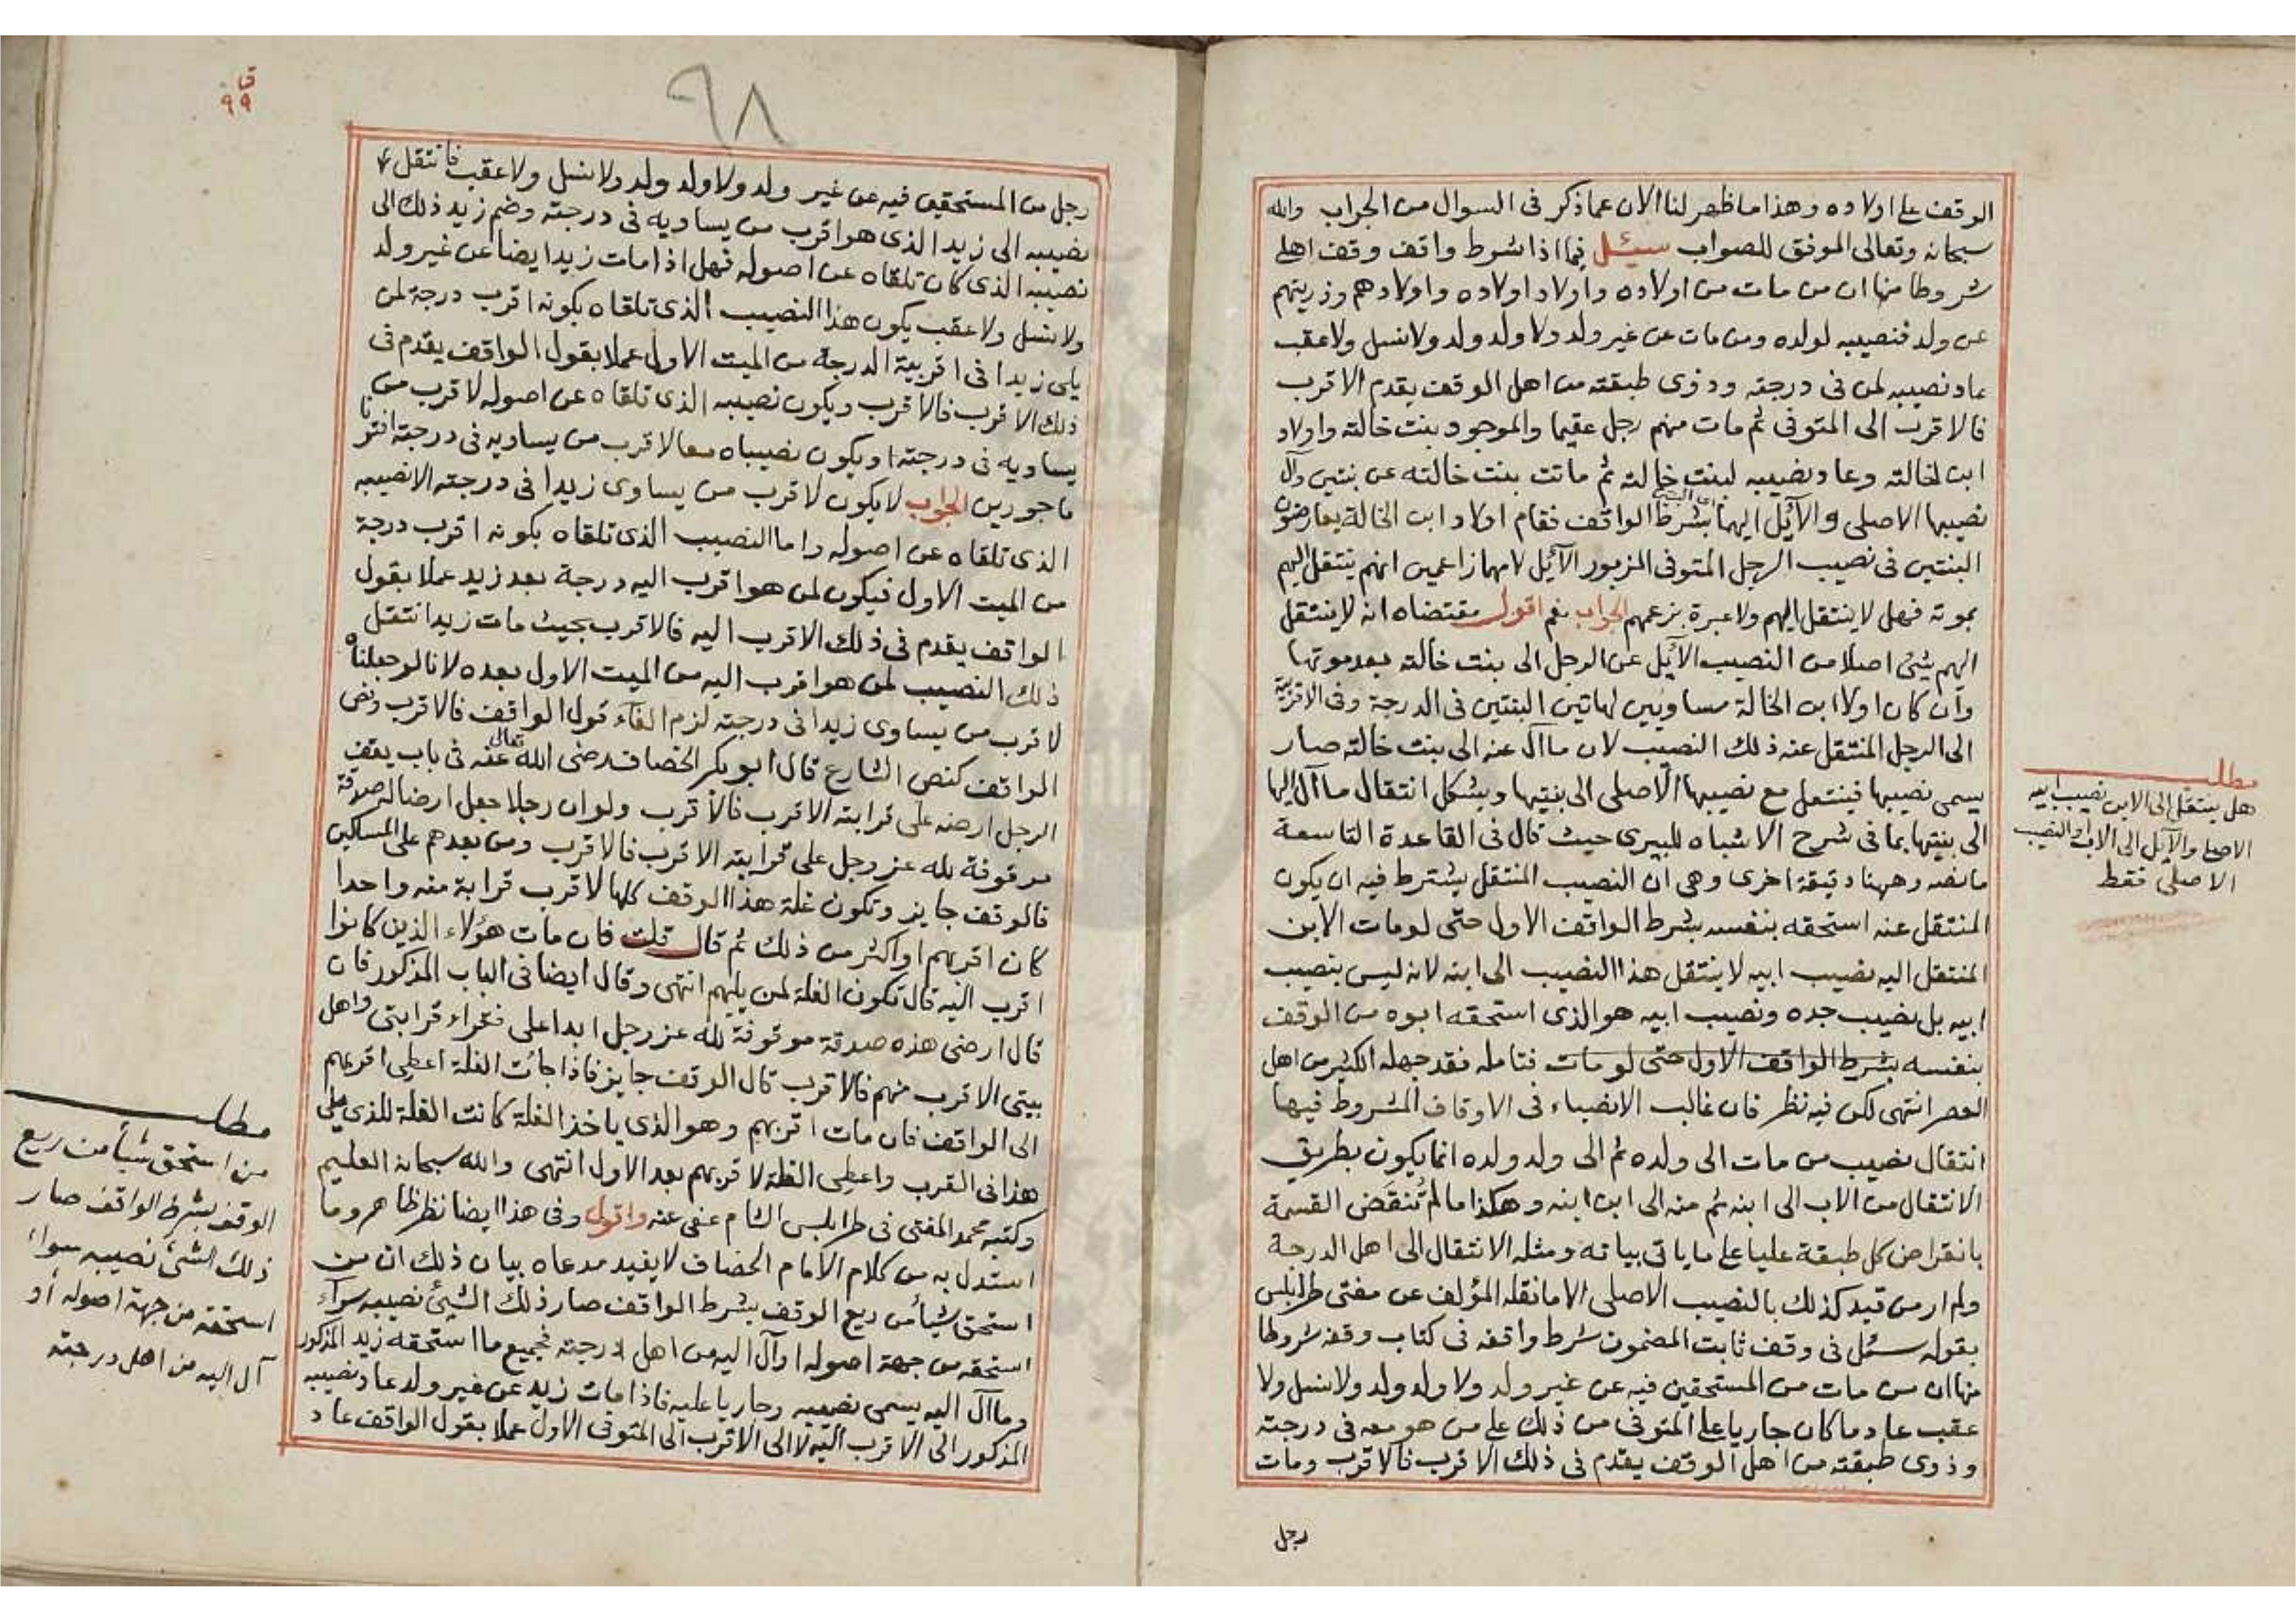 الوقف على اولاده وهذا ما ظهر لنا الان عما ذكر فى السوال من الجواب والله
سبحانه وتعالى الموفق للصواب سئل فيما اذا شرط واقف وقف اهلي
شروطا منها ان من مات من اولاده واولاد اولاده واولادهم وذريتهم
عن ولد فنصيبه لولده ومن مات عن غير ولد ولا ولد ولد ولا نسل ولا عقب
عاد نصيبه لمن فى درجته وذوى طبقته من اهل الوقف يقدم الاقرب
فالاقرب الى المتوفى ثم مات منهم رجل عقيما والموجود بنت خالته واولاد
ابن لخالته وعاد نصيبه لبنت خالته ثم ماتت بنت خالته عن بنتين وآل
نصيبها الاصلى والآيل اليهما بشرط الواقف فقام اولاد ابن الخالة يعارضون
البنتين فى نصيب الرجل المتوفى المزبور الآيل لامهما زاعمين انهم ينتقل اليهم
بموته فهل لا ينتقل اليهم ولا عبرة بزعمهم الجواب نعم اقول مقتضاه انه لا ينتقل
اليهم شئ اصلا من النصيب الآيل عن الرجل الى بنت خالته بعد موتها
وان كان اولا ابن الخالة مساويين لهاتين البنتين فى الدرجة وفى الاقربية
الى الرجل المنتقل عنه ذلك النصيب لان ما آل عنه الى بنت خالته صار
يسمى نصيبها فينتقل مع نصيبها الاصلى الى بنتيها ويشكل انتقال ما آل اليها
الى بنتيها بما فى شرح الاشباه للبيرى حيث قال فى القاعدة التاسعة
ما نصه وههنا دقيقة اخرى وهى ان النصيب المنتقل يشترط فيه ان يكون
المنتقل عنه استحقه بنفسه بشرط الواقف الاول حتى لو مات الابن
المنتقل اليه نصيب ابيه لا ينتقل هذا النصيب الى ابنه لانه ليس بنصيب
ابيه بل نصيب جده ونصيب ابيه هو الذى استحقه ابوه من الوقف
بنفسه بشرط الواقف الاول حتى لو مات فتامله فقد جهله الكثير من اهل
العصر انتهى لكن فيه نظر فان غالب الانصباء فى الاوقاف المشروط فيها
انتقال نصيب من مات الى ولده ثم الى ولد ولده انما يكون بطريق
الانتقال من الاب الى ابنه ثم منه الى ابن ابنه وهكذا ما لم تنقض القسمة
بانقراض كل طبقة عليا على ما ياتى بيانه ومثله الانتقال الى اهل الدرجة
ولم ار من قيد كذلك بالنصيب الاصلى الا ما نقله المؤلف عن مفتى طرابلس
بقوله سئل فى وقف ثابت المضمون شرط واقفه فى كتاب وقفه شروطا
منها ان من مات من المستحقين فيه عن غير ولد ولا ولد ولد ولا نسل ولا
عقب عاد ما كان جاريا على المتوفى من ذلك على من هو معه فى درجته
وذوى طبقته من اهل الوقف يقدم فى ذلك الاقرب فالاقرب ومات
رجل
مطلب
هل ينتقل الى الابن نصيب ابيه
الاصلى والآيل الى الاب او النصيب
الاصلى فقط
ق
٩٩
٩٨
رجل من المستحقين فيه عن غير ولد ولا ولد ولد ولا نسل ولا عقب فانتقل
نصيبه الى زيد الذى هو اقرب من يساويه فى درجته وضم زيد ذلك الى
نصيبه الذى كان تلقاه عن اصوله فهل اذا مات زيد ايضا عن غير ولد
ولا نسل ولا عقب يكون هذا النصيب الذى تلقاه بكونه اقرب درجة لمن
يلى زيدا فى اقربية الدرجة من الميت الاول عملا بقول الواقف يقدم فى
ذلك الاقرب فالاقرب ويكون نصيبه الذى تلقاه عن اصوله لاقرب من
يساويه فى درجته او يكون نصيباه معا لاقرب من يساويه فى درجته افتونا
ماجورين الجواب لا يكون لاقرب من يساوى زيدا فى درجته الا نصيبه
الذى تلقاه عن اصوله واما النصيب الذى تلقاه بكونه اقرب درجة
من الميت الاول فيكون لمن هو اقرب اليه درجة بعد زيد عملا بقول
الواقف يقدم فى ذلك الاقرب اليه فالاقرب بحيث مات زيد انتقل
ذلك النصيب لمن هو اقرب اليه من الميت الاول بعده لانا لو جعلناه
لاقرب من يساوى زيدا فى درجته لزم الغاء قول الواقف فالاقرب ونص
الواقف كنص الشارع قال ابو بكر الخصاف رضى الله تعالى عنه فى باب يقف
الرجل ارضه على قرابته الاقرب فالاقرب ولو ان رجلا جعل ارضا له صدقة
موقوفة لله عز وجل على قرابته الاقرب فالاقرب ومن بعدهم على المساكين
فالوقف جايز وتكون غلة هذا الوقف كلها لاقرب قرابة منه واحدا
كان اقربهم او اكثر من ذلك ثم قال قلت فان مات هؤلاء الذين كانوا
اقرب اليه قال تكون الغلة لمن يليهم انتهى وقال ايضا فى الباب المذكور فان
قال ارضى هذه صدقة موقوفة لله عز وجل ابدا على فقراء قرابتى واهل
بيتى الاقرب منهم فالاقرب قال الوقف جايز فاذا جائت الغلة اعطى اقربهم
الى الواقف فان مات اقربهم وهو الذى ياخذ الغلة كانت الغلة للذى يلى
هذا فى القرب واعطى الغلة لاقربهم بعد الاول انتهى والله سبحانه العليم
وكتبه محمد المفتى فى طرابلس الشام عفى عنه واقول وفى هذا ايضا نظر ظاهر وما
استدل به من كلام الامام الخصاف لا يفيد مدعاه بيان ذلك ان من
استحق شيأ من ريع الوقف بشرط الواقف صار ذلك الشيئ نصيبه سواء
استحقه من جهة اصوله او آل اليه من اهل درجته فجميع ما استحقه زيد المذكور
وما آل اليه يسمى نصيبه وجاريا عليه فاذا مات زيد عن غير ولد عاد نصيبه
المذكور الى الاقرب اليه لا الى الاقرب الى المتوفى الاول عملا بقول الواقف عاد
مطلب
من استحق شيأ من ريع
الوقف بشرط الواقف صار
ذلك الشئ نصيبه سواء
استحقه من جهة اصوله أو
آل اليه من اهل درجته